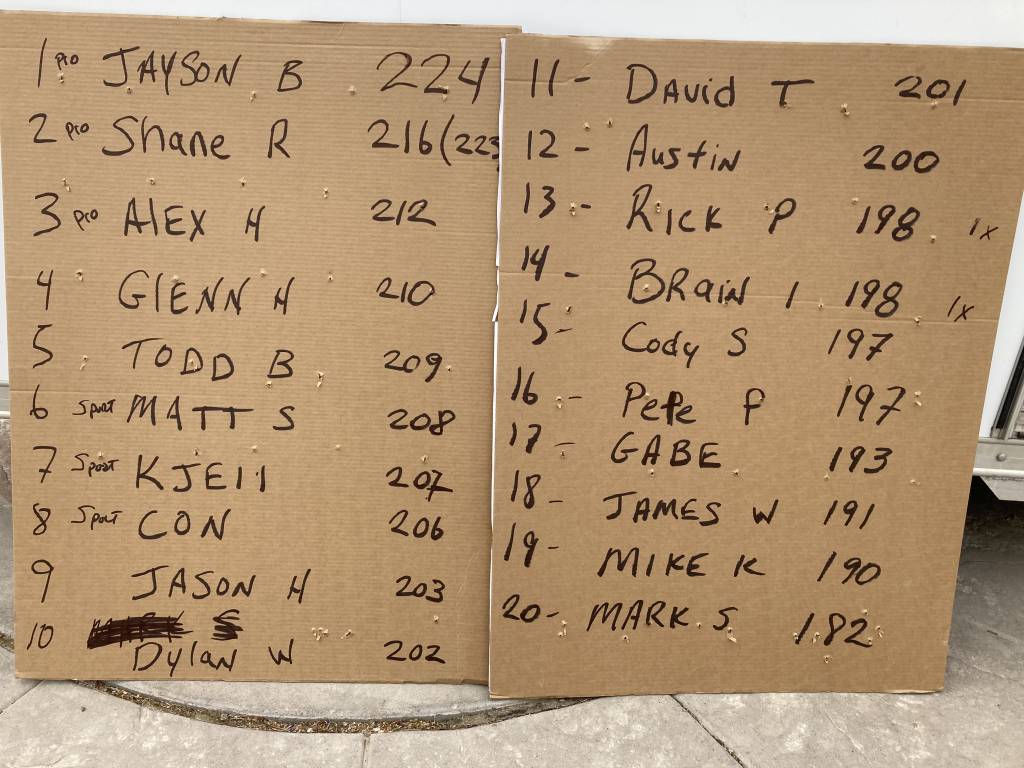 1 pro JAYSON B 224
2 pro Shane R 216 (223
3 pro AlEX H 212
4 GlENN H 210
5 TODD B 209
6 Sport MATT S 208
7 Sport KJEll 207
8 Sport CON 206
9 JASON H 203
10 MARK S
Dylan W 202
11 - DAvid T 201
12 - Austin 200
13 - RiCK P 198 1x
14 - BRaiN I 198 1x
15 - Cody S 197
16 - Pete P 197
17 - GABE 193
18 - JAMES W 191
19 - MIKE K 190
20 - MARK S 182